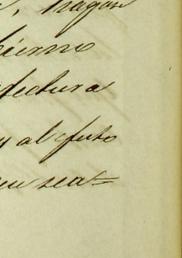 , hagan
bierno
fectura
y al efuto
que sea=